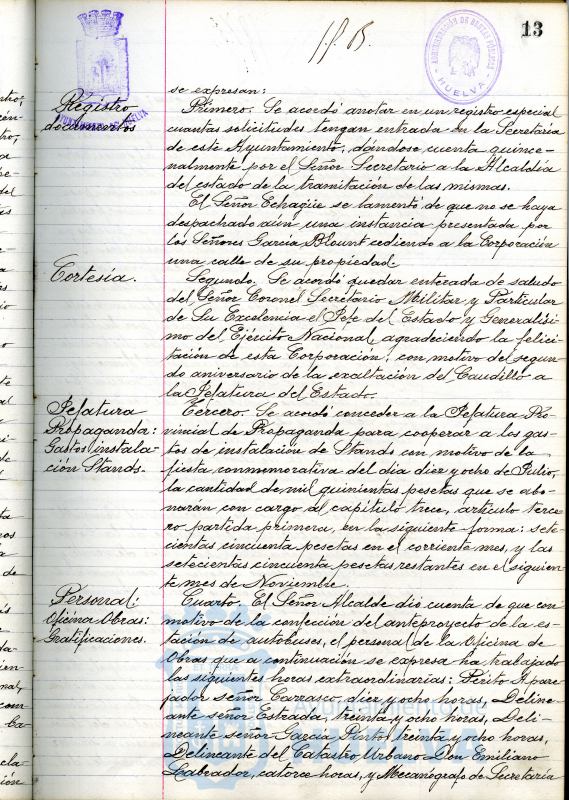 13
ADMINISTRACIÓN DE RENTAS PÚBLICAS
HUELVA
se expresan:
Registro
documentos
Primero. Se acordó anotar en un registro especial
cuantas solicitudes tengan entrada en la Secretaria
de este Ayuntamiento, dándose cuenta quince-
nalmente por el Señor Secretario a la Alcaldía
del estado de la tramitación de las mismas.
El Señor Echagüe se lamentó de que no se haya
despachado aún una instancia presentada por
los Señores Garcia Blount cediendo a la Corporación
una calle de su propiedad.
Cortesía.
Segundo. Se acordó quedar enterada de saludo
del Señor Coronel Secretario Militar y Particular
de Su Excelencia el Jefe del Estado y Generalísi-
mo del Ejército Nacional, agradeciendo la felici-
tación de esta Corporación, con motivo del segun-
do aniversario de la exaltación del Caudillo a
la Jefatura del Estado.
Jefatura
Propaganda:
Gastos instala-
ción Stands.
Tercero. Se acordó conceder a la Jefatura Pro-
vincial de Propaganda para cooperar a los gas-
tos de instalación de Stands con motivo de la
fiesta conmemorativa del día diez y ocho de Julio,
la cantidad de mil quinientas pesetas que se abo-
naran con cargo al capítulo trece, artículo terce-
ro partida primera, en la siguiente forma: sete-
cientas cincuenta pesetas en el corriente mes, y las
setecientas cincuenta pesetas restantes en el siguien-
te mes de Noviembre.
Personal:
Oficina Obras:
Gratificaciones.
Cuarto. El Señor Alcalde dió cuenta de que con
motivo de la confección del anteproyecto de la es-
tación de autobuses, el personal de la Oficina de
Obras que a continuación se expresa ha trabajado
las siguientes horas extraordinarias: Perito Apare-
jador señor Carrasco, diez y ocho horas, Deline-
ante señor Estrada, treinta y ocho horas, Deli-
neante señor Garcia Pinto, treinta y ocho horas,
Delineante del Catastro Urbano Don Emiliano
Labrador, catorce horas, y Mecanógrafo de Secretaria
Ayuntamiento de
HUELVA